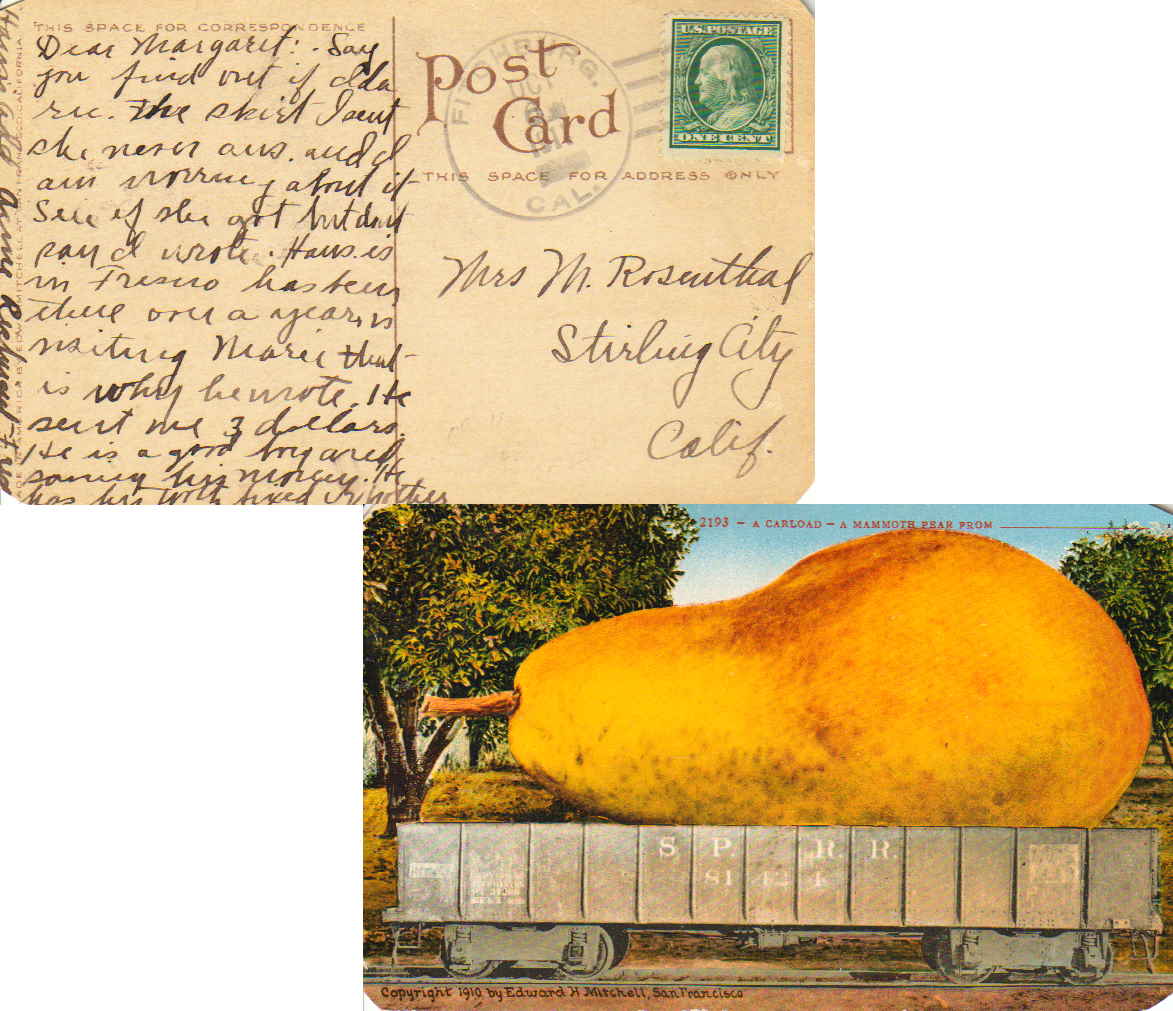 THIS SPACE FOR CORRESPONDENCE
Dear Margaret: Say
you find out if Ida
rec. the skirt I sent
she never ans. and I
am worring about it
See if she got but dont
say I wrote. Hans. is
in Fresno has been
there over a year, is
visiting Marie that
is why he wrote. He
sent me 3 dollars.
He is a good boy and
saving his money. He
has his teeth fixed
Post
Card
FITCHBURG.
OCT
CAL.
U.S. POSTAGE
ONE CENT
THIS SPACE FOR ADDRESS ONLY
Mrs M. Rosenthal
Stirling City
Calif.
2193 — A CARLOAD — A MAMMOTH PEAR FROM
S. P. R. R.
81424
Copyright 1910 by Edward H Mitchell, San Francisco